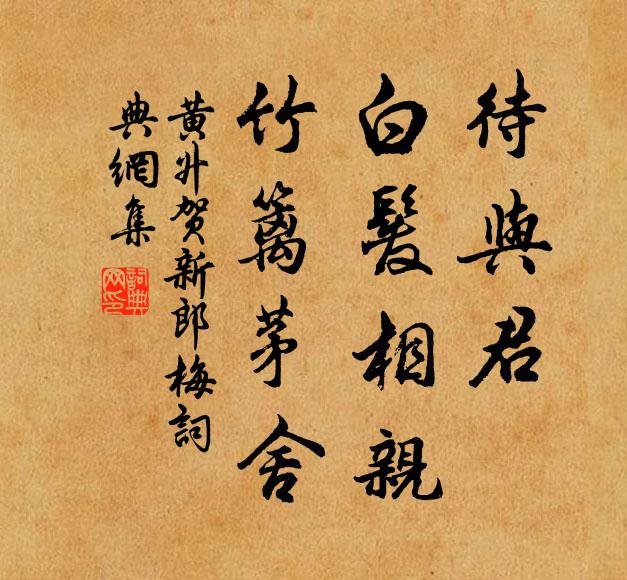 待與君
白髮相親
竹籬茅舍
黃升賀新郎梅詞
典網集
詞典網印